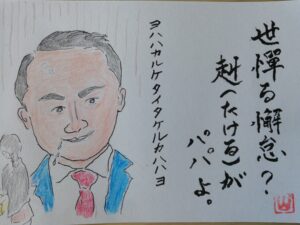 世憚る懈怠?
赳(たける)が
パパよ。
ヨハハカルケタイタケルカハハヨ